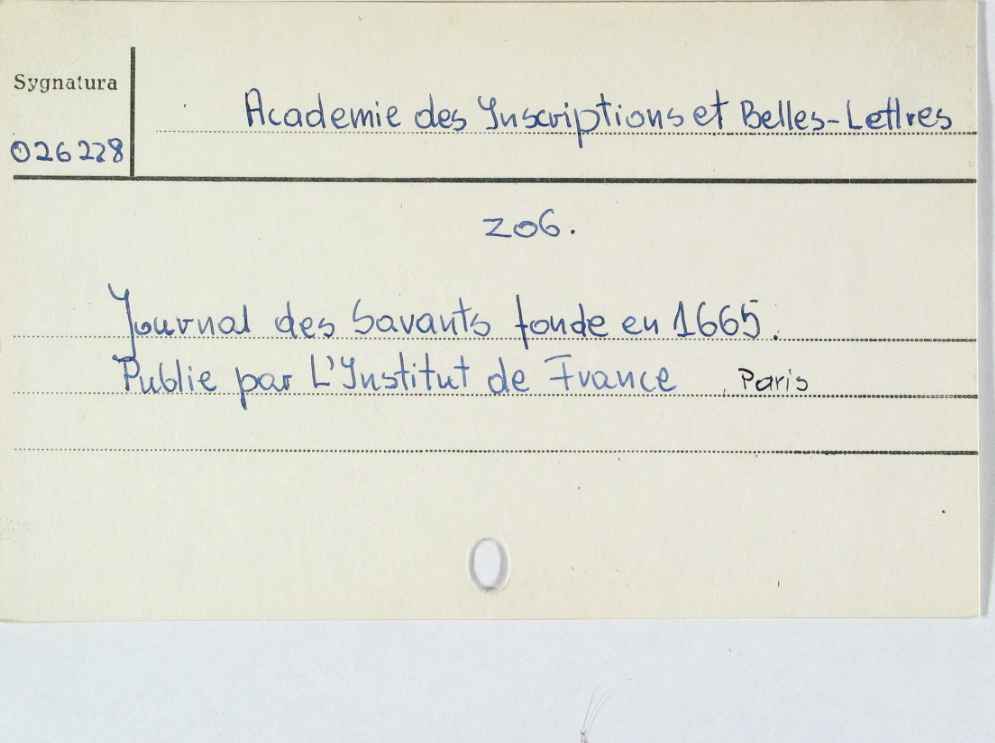 Sygnatura
026228
Academie des Inscriptions et Belles-Lettres
zob.
Journal des Savants fonde en 1665.
Publie par L'Institut de France, Paris